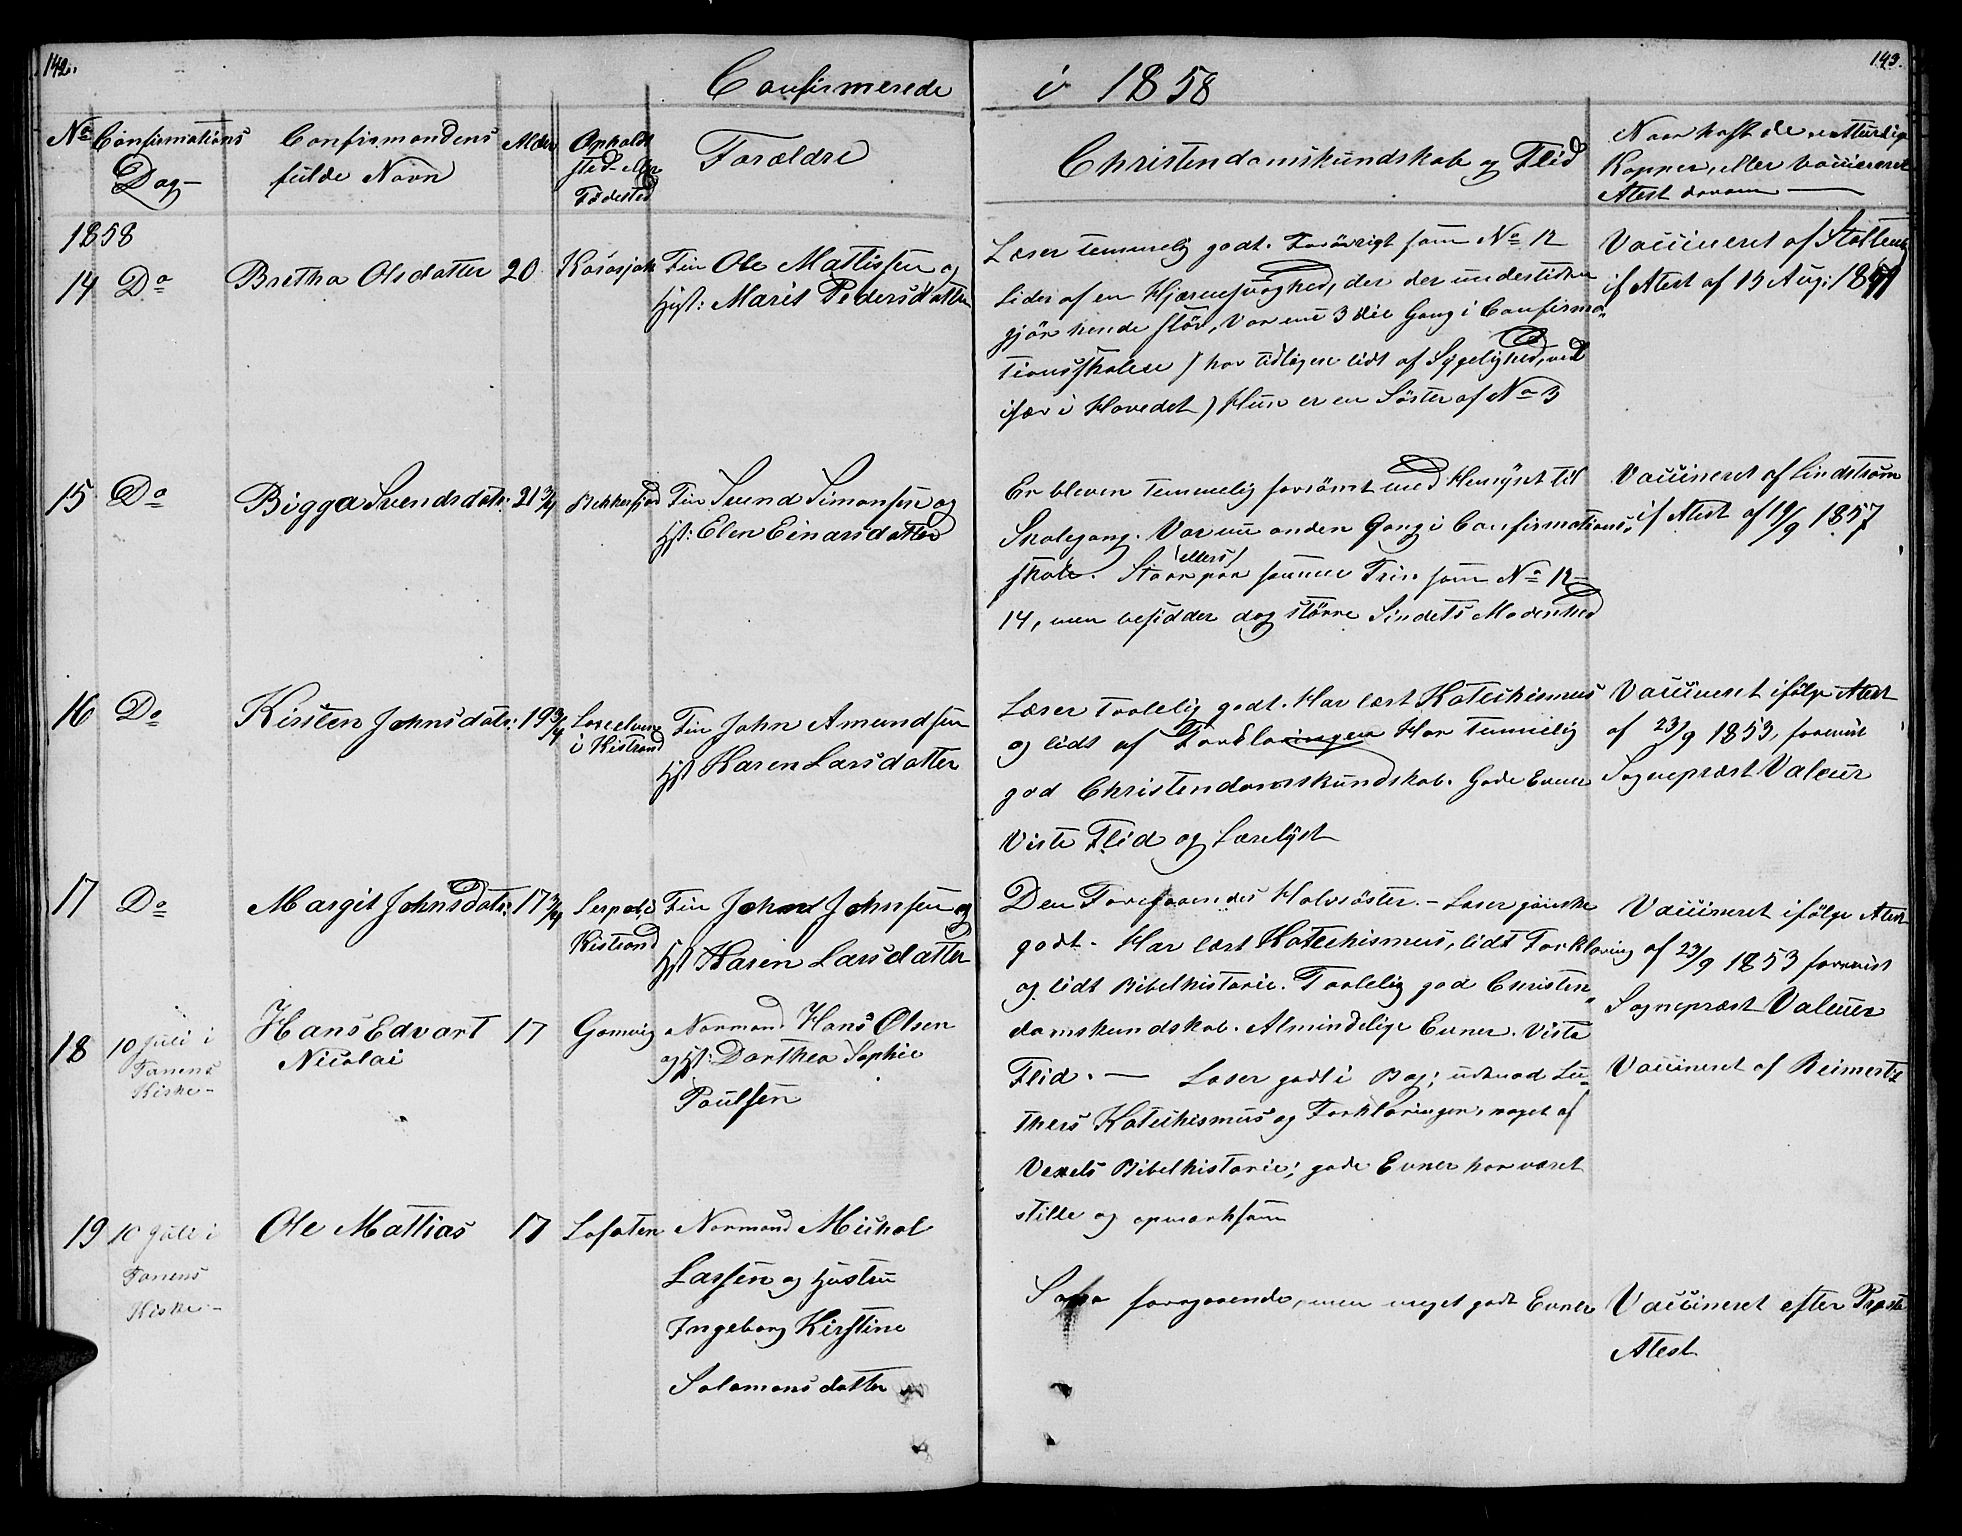 142.
143.
Confirmerede
i 1858
No
Confirmations
Dag
Confirmandens
fulde Navn
Alder
Opholdsted eller
Fødested
Forældre
Christendomskundskab og Flid
Naar havt de naturlige
Kopper, eller Vaccineret
Atest derom
1858
14 Do Bretha Olsdatter 20 Karasjok Fin Ole Mattissen og
Hust: Marit Pedersdatter
Læser temmelig godt. Forövrigt som No 12
Lider af en Hjærnesvaghed, der
gjör hende slöv, Var nu 3die Gang i Confirma-
tionsskolen / har tidligere lidt af Sygelighed, ved
især i Hovedet) Hun er en Söster af No 3
Vaccineret af Stoltenb
if Atest af 15 Aug:
15 Do Bigga Svendsdatr: 21 3/4 Bekkarfjord Fin Svend Simonsen og
Hst: Elen Einarsdatter
Er bleven temmelig forsömt med Hensynt til
Skolegang. Var nu anden Gang i Confirmations-
skole. Staar ellers paa samme Trin som No 12-
14, men besidder dog större Sindets Modenhed
Vaccineret af Lindström
if Atest af 19/9 1857
16 Do Kirsten Johnsdatr: 19 3/4
i Kistrand
Fin John Amundsen
Hst Karen Larsdatter
Læser taalelig godt. Har lært Katechismus
og lidt af Forklaringen Har temmelig
god Christendomskundskab. Gode Evner
Viste Flid og Lærelyst
Vaccineret ifölge Atest
af 23/9 1853, forevist
Sognepræst Valeur
17 Do Margit Johnsdatr: 17 3/4
Kistrand
Fin John Johnsen og
Hst Karen Larsdatter
Den Forefaaendes Halvsöster. - Læser ganske
godt. Har lært Katechismus, lidt Forklaring
og lidt Bibelhistorie. Taalelig god Christen-
domskundskab. Almindelige Evner. Viste
Flid. -
Vaccineret ifölge Atest
af 23/9 1853 forevist
Sognepræst Valeur
18 10 Juli i
Tanens
Kirke-
Hans Edvart
Nicolai
17 Gamvig Normand Hans Olsen
og Hst: Dorthea Sophie
Poulsen
Læser godt i Bog; udenad Lu-
thers Katechismus og Forklaringen, noget af
Vexels Bibelhistorie; gode Evner har været
stille og opmærksom
Vaccineret af Reimertz
19 10 Juli i
Tanens
Kirke-
Ole Mattias 17 Lofoten Normand Michal
Larsen og Hustru
Ingeborg Kirstine
Salamonsdatter
Som foregaaende, men meget godt Evner
Vaccineret efter Præste
Atest